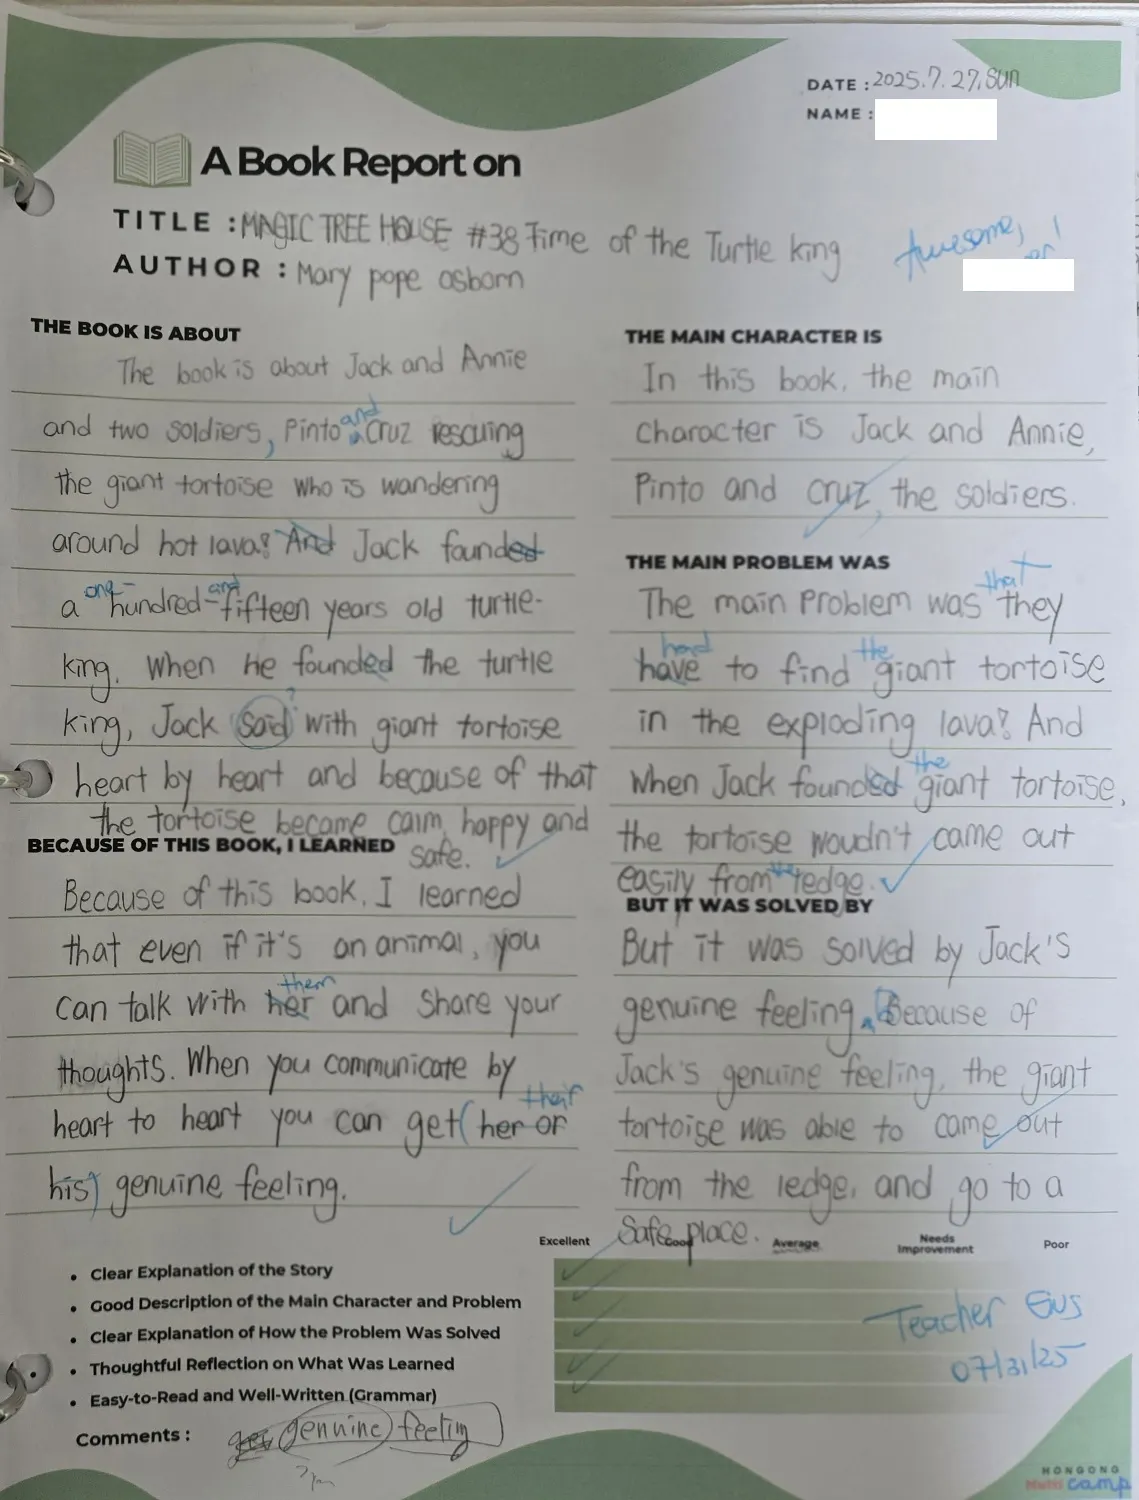 DATE : 2025.7.27.SUN
NAME :
A Book Report on
TITLE : MAGIC TREE HOUSE #38 Time of the Turtle king
AUTHOR : Mary pope osborn
Awesome,
THE BOOK IS ABOUT
The book is about Jack and Annie
and
and two soldiers, Pinto Cruz rescuing
the giant tortoise who is wandering
around hot lava? And Jack founded
one- and
a hundred-fifteen years old turtle-
king. When he founded the turtle
?
king, Jack said with giant tortoise
heart by heart and because of that
the tortoise became calm, happy and
safe.
BECAUSE OF THIS BOOK, I LEARNED
Because of this book, I learned
that even if it's an animal, you
them
can talk with her and share your
thoughts. When you communicate by
their
heart to heart you can get (her or
his) genuine feeling.
THE MAIN CHARACTER IS
In this book, the main
character is Jack and Annie,
Pinto and cruz, the soldiers.
THE MAIN PROBLEM WAS
that
The main problem was they
had the
have to find giant tortoise
in the exploding lava? And
the
when Jack founded giant tortoise,
the tortoise woudn't came out
the
easily from ledge.
BUT IT WAS SOLVED BY
But it was solved by Jack's
genuine feeling. Because of
Jack's genuine feeling, the giant
tortoise was able to came out
from the ledge, and go to a
safe place.
Excellent Good Average Needs Improvement Poor
• Clear Explanation of the Story
• Good Description of the Main Character and Problem
• Clear Explanation of How the Problem Was Solved
• Thoughtful Reflection on What Was Learned
• Easy-to-Read and Well-Written (Grammar)
Comments : genuine feeling
Teacher Gus
07/31/25
HONGONG
Multi camp